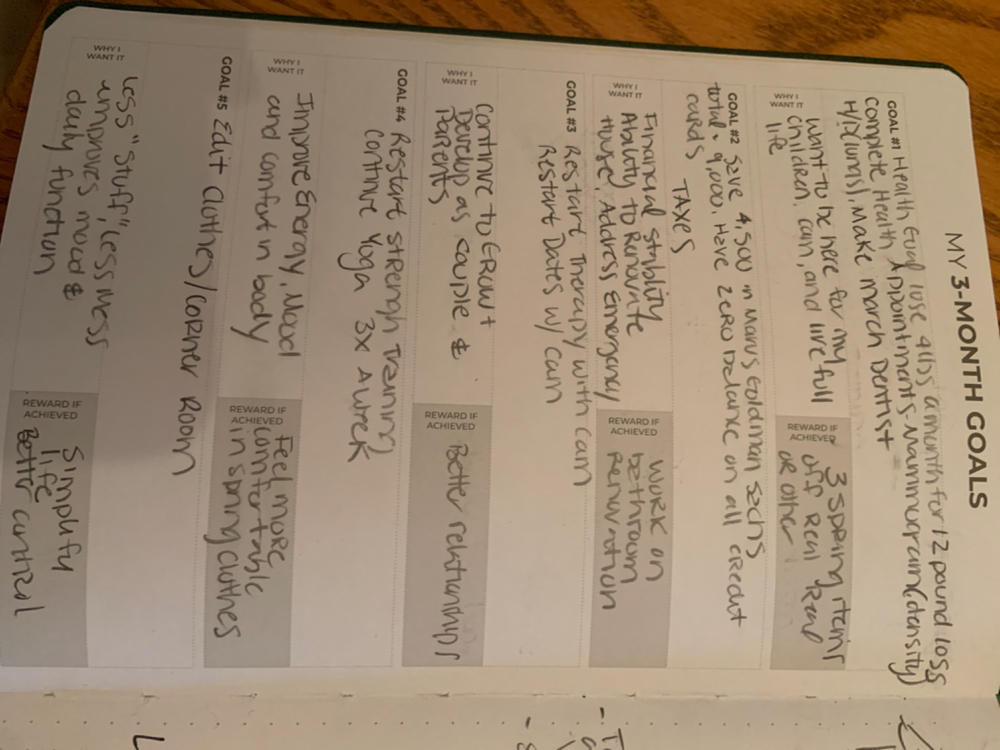 MY 3-MONTH GOALS
GOAL #1 Health Goal lose 4lbs a month for 12 pound loss
Complete Health Appointments-Mammogram(density)
H/P(lunas), Make march Dentist
WHY I
WANT IT
want to be here for my
children, cam, and live full
life
REWARD IF
ACHIEVED
3 spring items
off Real Real
or other
GOAL #2 Save 4,500 in Marus Goldman Sachs
total = 9,000. Have zero balance on all credit
cards
TAXES
WHY I
WANT IT
Financial Stability
Ability to Renovate
House, Address Emergency
REWARD IF
ACHIEVED
WORK on
bathroom
Renovation
GOAL #3 Restart Therapy with Cam
Restart Dates w/ Cam
WHY I
WANT IT
Continue to Grow +
Develop as couple &
Parents
REWARD IF
ACHIEVED
Better relationships
GOAL #4 Restart Strengh Training
Continue Yoga 3x A week
WHY I
WANT IT
Improve Energy, Mood
and comfort in body
REWARD IF
ACHIEVED
Feel more
comfortable
in spring clothes
GOAL #5 Edit Clothes/Corner Room
WHY I
WANT IT
Less "Stuff," Less mess
improves mood &
daily function
REWARD IF
ACHIEVED
Simplify
life
Better control